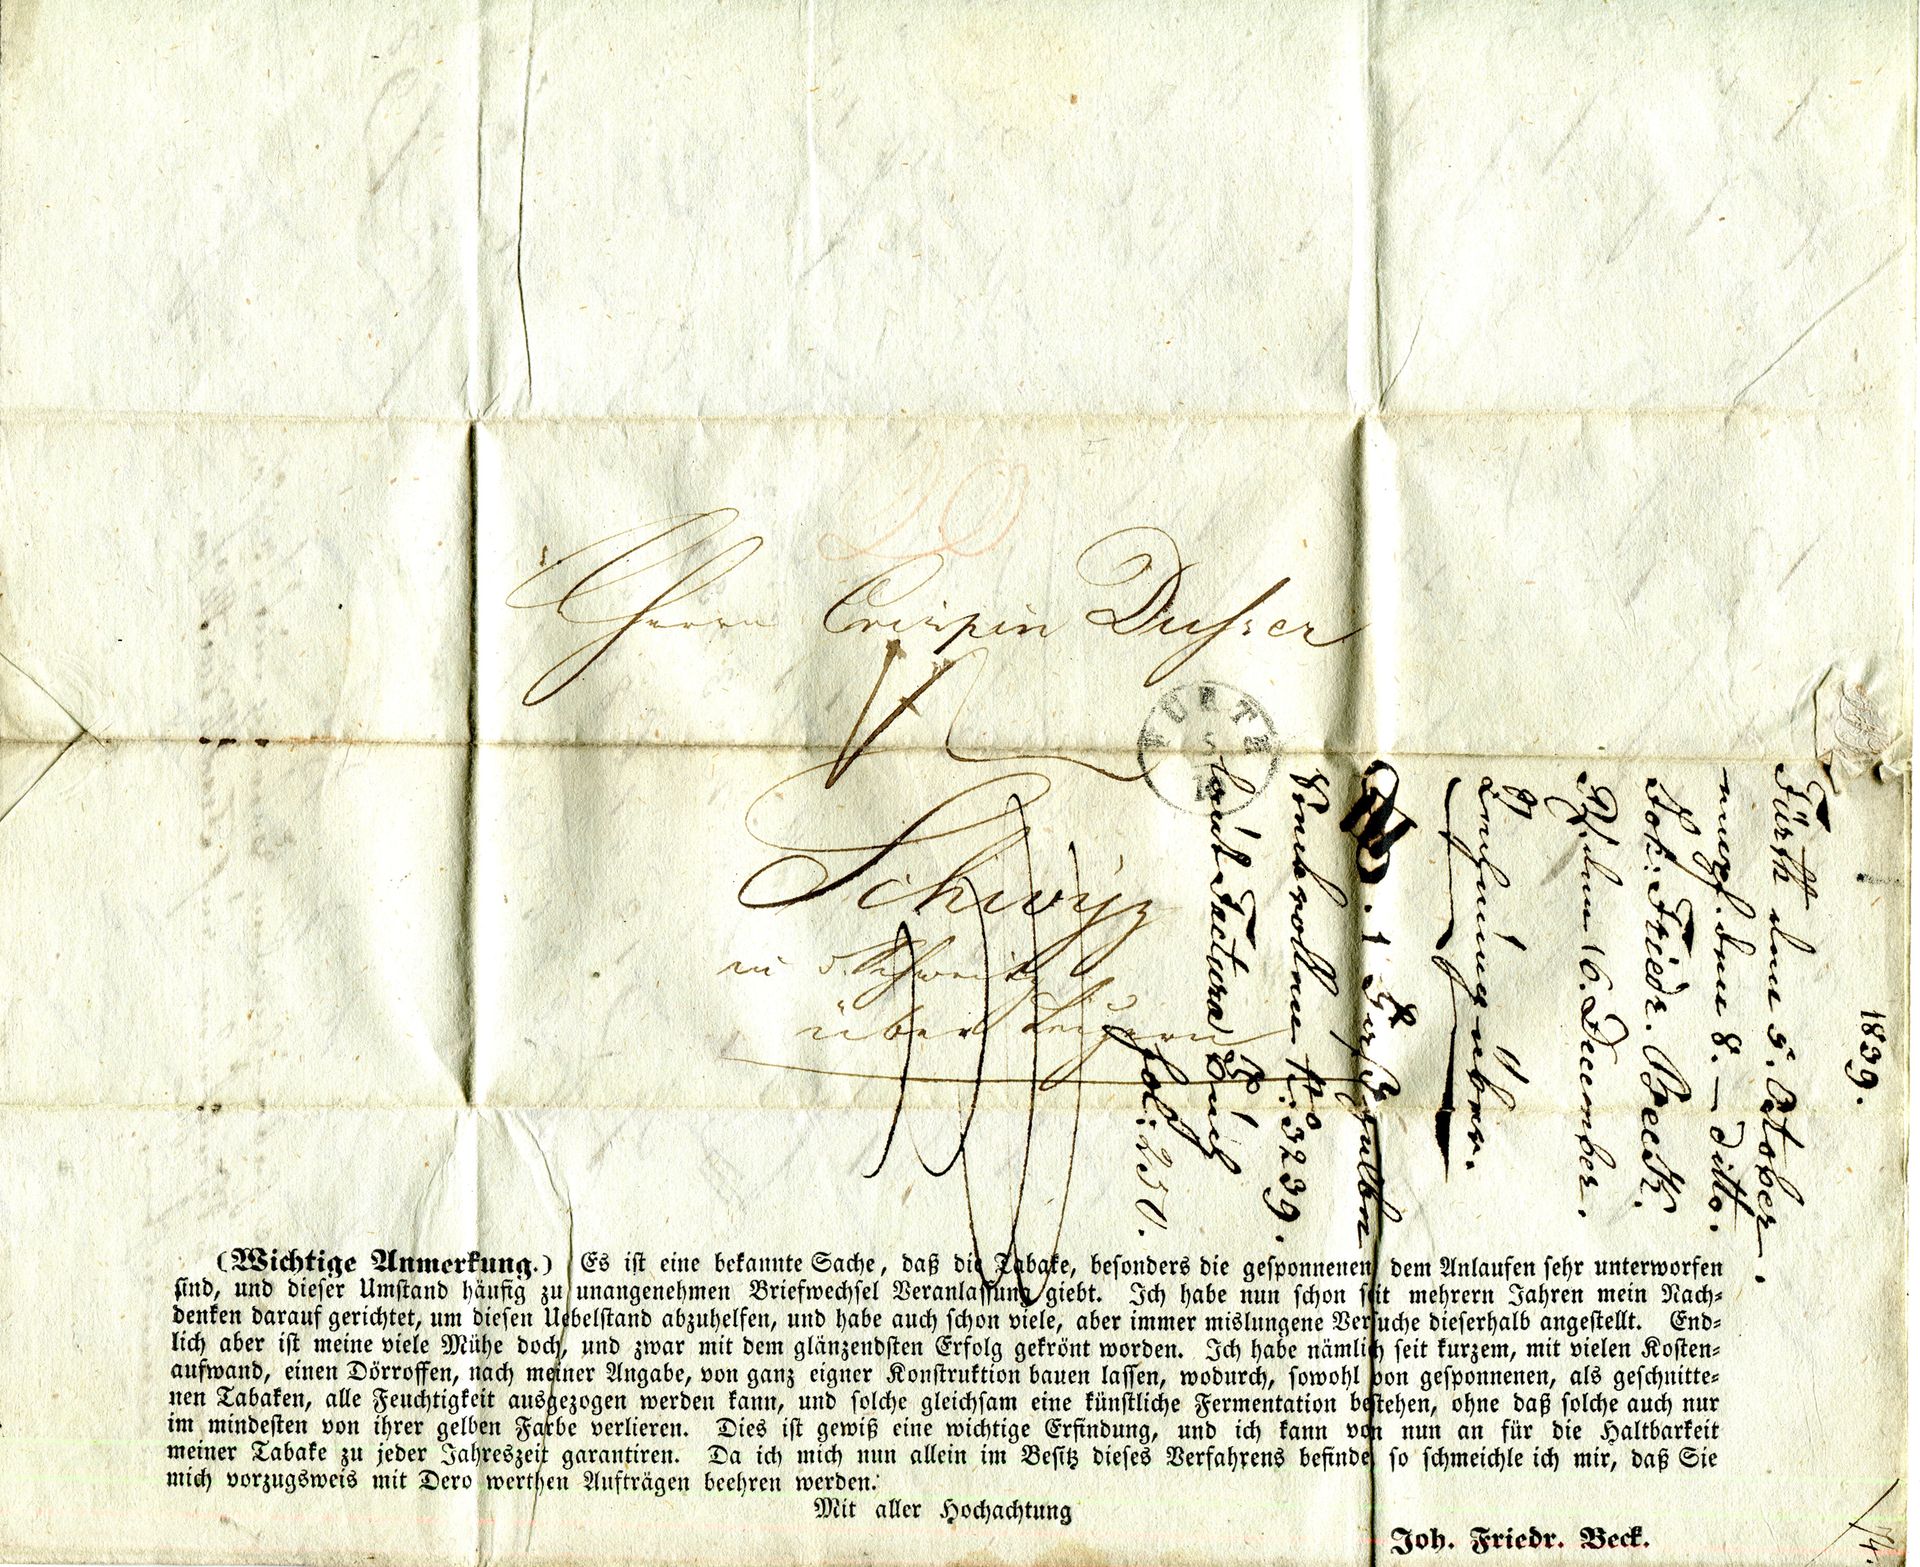 20
Herrn Crispin Dusser
FÜRTH
5
Schwÿz
in d. Schweitz
über Luzern
1839.
Fürth den 5. October.
empf. den 8. – ditto.
Joh: Friedr. Beck.
16. December.
No: 3239.
laut Factura
fol: 250.
(Wichtige Anmerkung.) Es ist eine bekannte Sache, daß die Tabake, besonders die gesponnenen dem Anlaufen sehr unterworfen
sind, und dieser Umstand häufig zu unangenehmen Briefwechsel Veranlassung giebt. Ich habe nun schon seit mehrern Jahren mein Nach-
denken darauf gerichtet, um diesen Uebelstand abzuhelfen, und habe auch schon viele, aber immer mislungene Versuche dieserhalb angestellt. End-
lich aber ist meine viele Mühe doch, und zwar mit dem glänzendsten Erfolg gekrönt worden. Ich habe nämlich seit kurzem, mit vielen Kosten-
aufwand, einen Dörroffen, nach meiner Angabe, von ganz eigner Konstruktion bauen lassen, wodurch, sowohl von gesponnenen, als geschnitte-
nen Tabaken, alle Feuchtigkeit ausgezogen werden kann, und solche gleichsam eine künstliche Fermentation bestehen, ohne daß solche auch nur
im mindesten von ihrer gelben Farbe verlieren. Dies ist gewiß eine wichtige Erfindung, und ich kann von nun an für die Haltbarkeit
meiner Tabake zu jeder Jahreszeit garantiren. Da ich mich nun allein im Besitz dieses Verfahrens befinde, so schmeichle ich mir, daß Sie
mich vorzugsweis mit Dero werthen Aufträgen beehren werden.
Mit aller Hochachtung
Joh. Friedr. Beck.